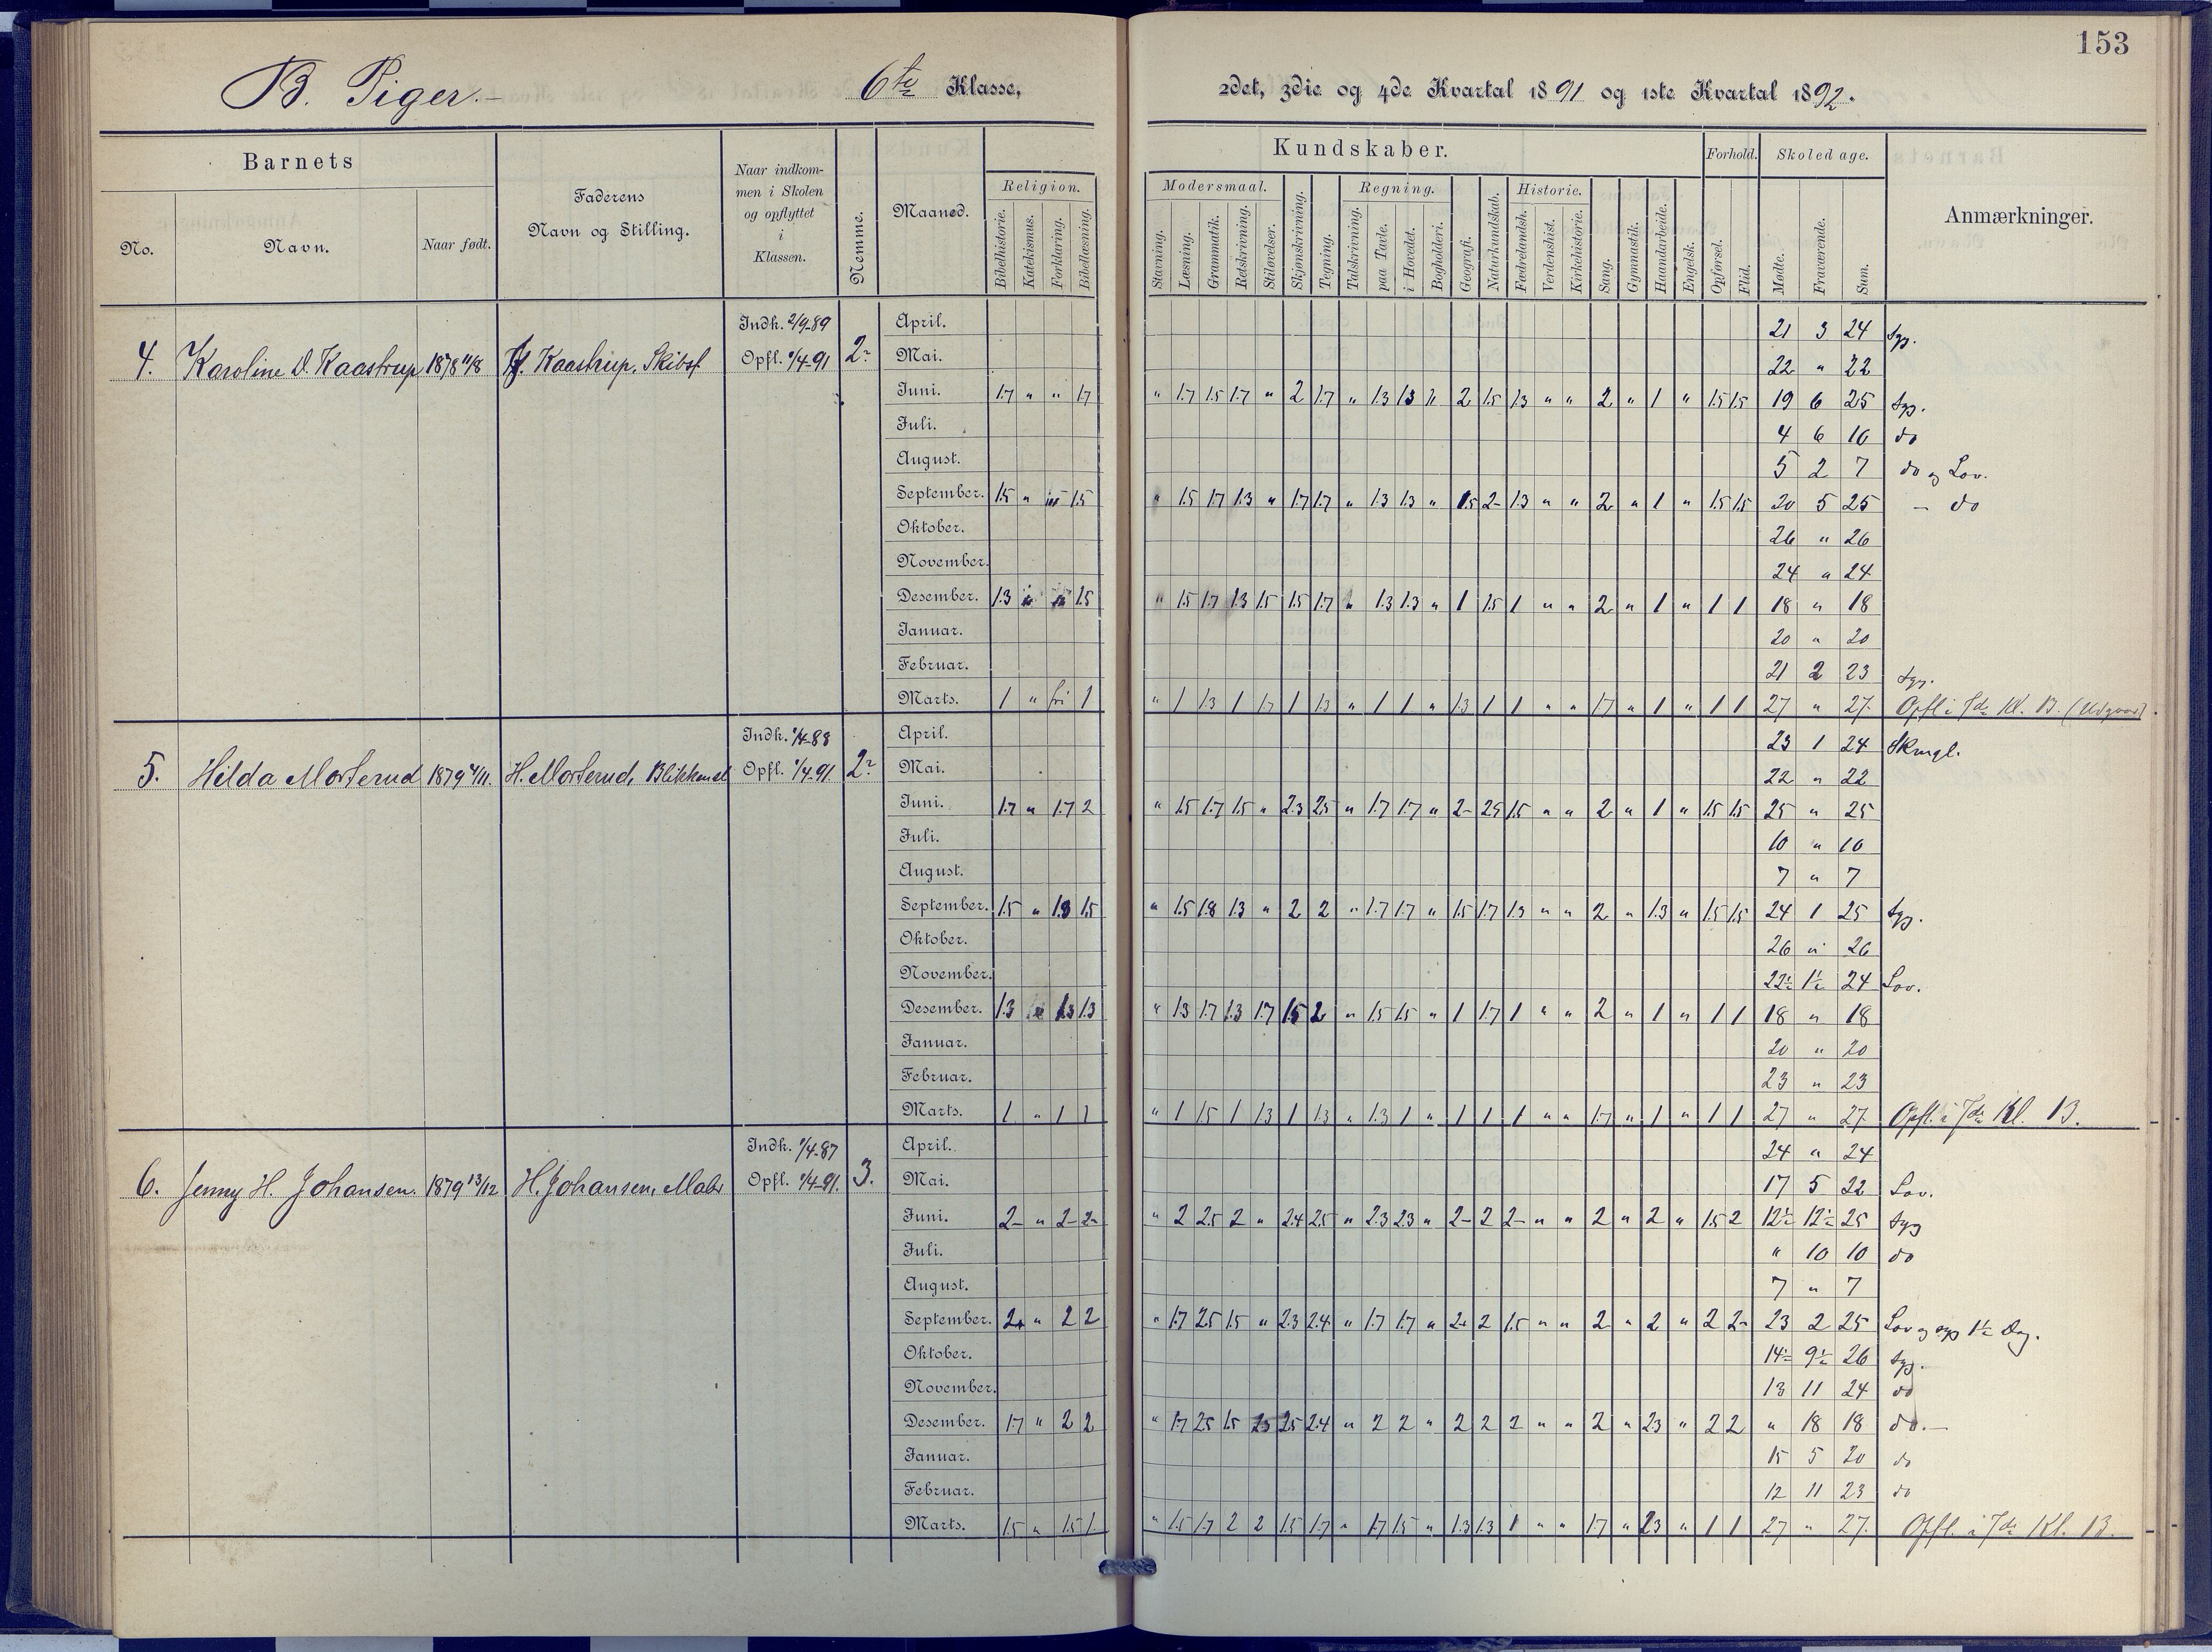 153
B. Piger.
6te Klasse, 2det, 3die og 4de Kvartal 1891 og 1ste Kvartal 1892.
Barnets
Faderens Navn og Stilling.
Naar indkommen i Skolen og opflyttet i Klassen.
Nemme.
Maaned.
Kundskaber.
Forhold.
Skoledage.
Anmærkninger.
No. Navn. Naar født.
Religion. Modersmaal. Regning. Historie.
Bibelhistorie. Katekismus. Forklaring. Bibellæsning. Stavning. Læsning. Grammatik. Retskrivning. Stiløvelser. Skjønskrivning. Tegning. Talskrivning. paa Tavle. i Hovedet. Bogholderi. Geografi. Naturkundskab. Fædrelandsh. Verdenshist. Kirkehistorie. Sang. Gymnastik. Haandarbeide. Engelsk. Opførsel. Flid. Mødte. Fraværende. Sum.
Indh. 2/9-89 April. 21 3 24 Syg.
4. Karoline D. Kaastrup 1878 11/8 Kaastrup, Skibsf. Opfl. 1/4-91 2- Mai. 22 " 22
Juni. 1.7 " " 1.7 " 1.7 1.5 1.7 " 2 1.7 " 1.3 1.3 " 2 1.5 1.3 " " 2 " 1 " 1.5 1.5 19 6 25 Syg.
Juli. 4 6 10 do
August. 5 2 7 do og Lov.
September. 1.5 " 1.5 " 1.5 1.7 1.3 " 1.7 1.7 " 1.3 1.3 " 1.5 2- 1.3 " " 2 " 1 " 1.5 1.5 20 5 25 - do
Oktober. 26 " 26
November. 24 " 24
Desember. 1.3 1.5 " 1.5 1.7 1.3 1.5 1.5 1.7 " 1.3 1.3 " 1 1.5 1 " " 2 " 1 " 1 1 18 " 18
Januar. 20 " 20
Februar. 21 2 23 Syg.
Marts. 1 " fri 1 " 1 1.3 1 1.7 1 1.3 " 1 1 " 1.3 1 1 " " 1.7 " 1 " 1 1 27 " 27. Opfl. i 7de Kl. B.
Indh. 1/4-88 April. 23 1 24 Skmgl.
5. Hilda Mosterud 1879 4/11. H. Mosterud, Blikkensl. Opfl. 1/4-91. 2- Mai. 22 " 22
Juni. 1.7 " 1.7 2 " 1.5 1.7 1.5 " 2.3 2.5 " 1.7 1.7 " 2- 2.5 1.5 " " 2 " 1 " 1.5 1.5 25 " 25
Juli. 10 " 10
August. 7 " 7
September. 1.5 " 1.3 1.5 " 1.5 1.8 1.3 " 2 2 " 1.7 1.7 " 1.5 1.7 1.3 " " 2 " 1.3 " 1.5 1.5 24 1 25 Syg.
Oktober. 26 " 26
November. 22½ 1½ 24 Lov.
Desember. 1.3 1.3 1.3 " 1.3 1.7 1.3 1.7 1.5 2 " 1.5 1.5 " 1 1.7 1 " " 2 " 1 " 1 1 18 " 18
Januar. 20 " 20
Februar. 23 " 23
Marts. 1 " 1 1 " 1 1.5 1 1.3 1 1.3 " 1.3 1 " 1 1 1 " " 1.7 " 1 " 1 1 27 " 27. Opfl. i 7de Kl. B.
Indh. 1/4-87 April. 24 " 24
6. Jenny H. Johansen. 1879 13/12 H. Johansen, Maler Opfl. 1/4-91. 3. Mai. 17 5 22 Lov.
Juni. 2- " 2- 2- " 2 2.5 2 " 2.4 2.5 " 2.3 2.3 " 2- 2 2- " " 2 " 2 " 1.5 2 12½ 12½ 25 Syg
Juli. " 10 10 do
August. 7 " 7
September. 2 " 2 2 " 1.7 2.5 1.5 " 2.3 2.4 " 1.7 1.7 " 2- 2 1.5 " " 2 " 2 " 2 2- 23 2 25 Lov og syg 1½ Dag.
Oktober. 14½ 9½ 26 Syg.
November. 13 11 24 do
Desember. 1.7 " 2 2 " 1.7 2.5 1.5 2.5 2.5 2.4 " 2 2 " 2 2 2 " " 2 " 2.3 " 2 2 " 18 18 do.-
Januar. 15 5 20 do
Februar. 12 11 23 do
Marts. 1.5 " 1.5 1. " 1.5 1.7 2 2 1.5 1.7 " 1.7 1.5 " 1.3 1.3 1 " " 1.7 " 2.3 " 1 1 27 " 27. Opfl. i 7de Kl. B.